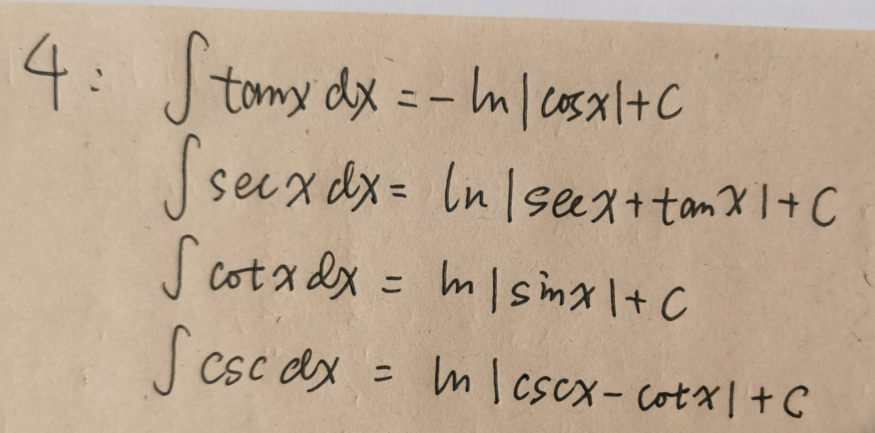 4: ∫ tanx dx = - ln|cosx|+C
∫ secx dx = ln|secx+tanx|+C
∫ cotx dx = ln|sinx|+C
∫ csc dx = ln|cscx-cotx|+C